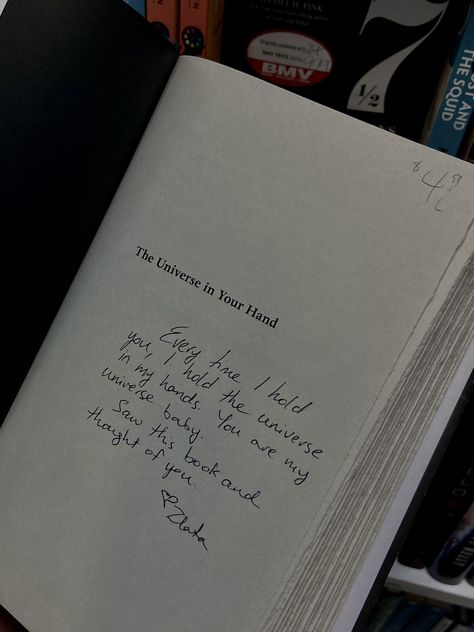 H. PINK
Originally published at
BMV PRICE
BMV
7
1/2
ST AND
THE SQUID
$4
The Universe in Your Hand
Every time I hold
you, I hold the universe
in my hands. You are my
universe baby.
Saw this book and
thought of you.
♡ Zlata